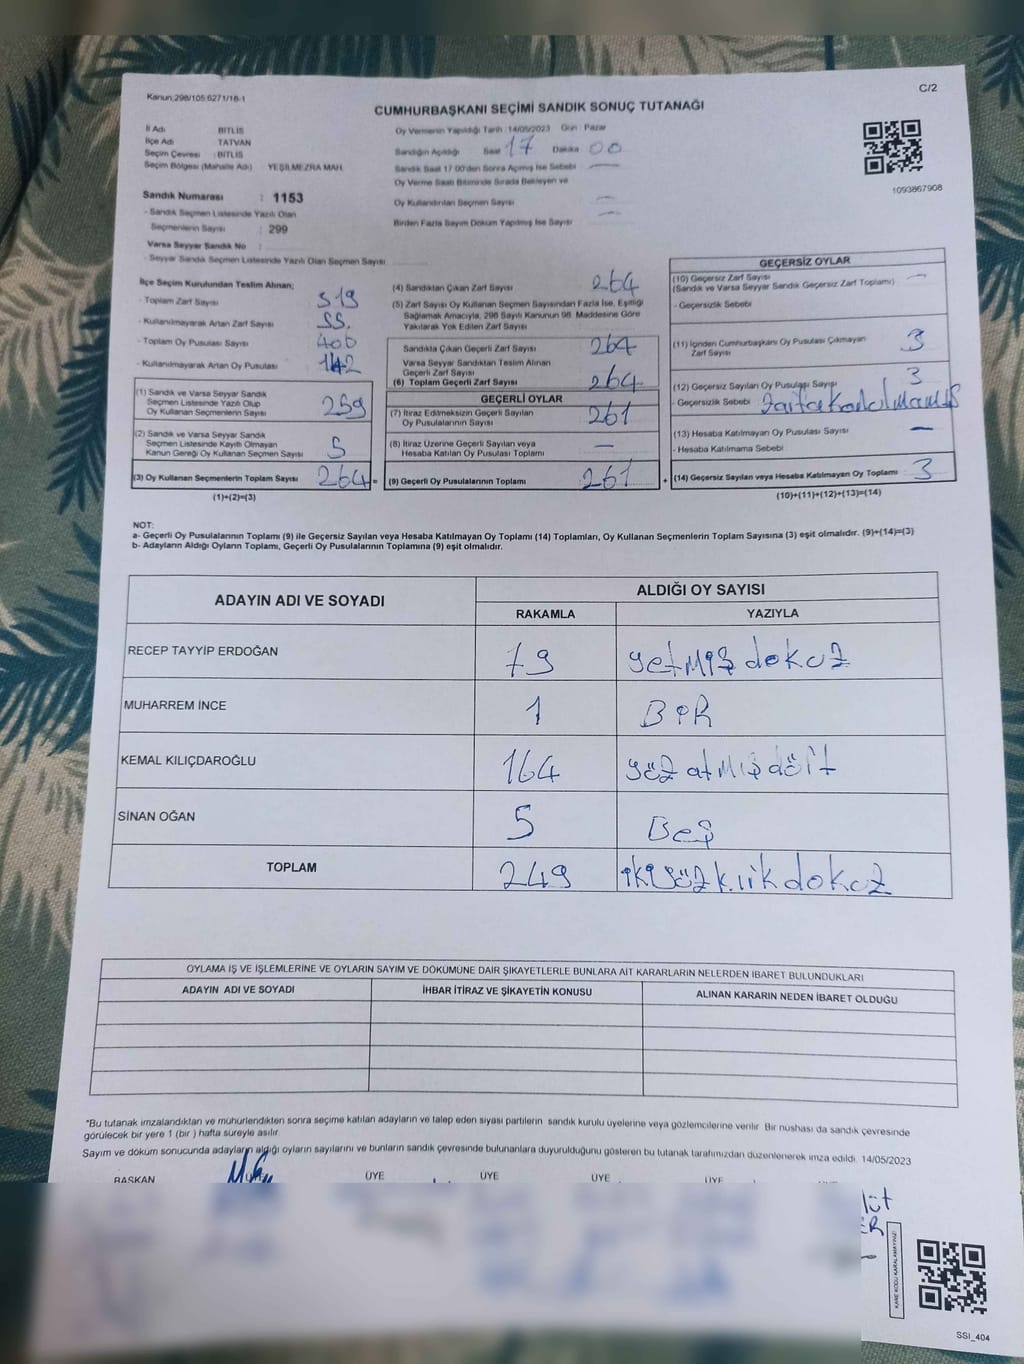 Kanun;298/105;6271/18-1
C/2
CUMHURBAŞKANI SEÇİMİ SANDIK SONUÇ TUTANAĞI
İl Adı : BİTLİS
İlçe Adı : TATVAN
Seçim Çevresi : BİTLİS
Seçim Bölgesi (Mahalle Adı) YEŞİLMEZRA MAH.
Sandık Numarası : 1153
- Sandık Seçmen Listesinde Yazılı Olan
Seçmenlerin Sayısı : 299
Varsa Seyyar Sandık No :
- Seyyar Sandık Seçmen Listesinde Yazılı Olan Seçmen Sayısı
Oy Vermenin Yapıldığı Tarih :14/05/2023 Gün : Pazar
Sandığın Açıldığı Saat 17 Dakika 00
Sandık Saat 17.00'den Sonra Açılmış İse Sebebi —
Oy Verme Saati Bitiminde Sırada Bekleyen ve
Oy Kullandırılan Seçmen Sayısı —
Birden Fazla Sayım Döküm Yapılmış İse Sayısı —
1093867908
İlçe Seçim Kurulundan Teslim Alınan;
- Toplam Zarf Sayısı 319
- Kullanılmayarak Artan Zarf Sayısı 55.
- Toplam Oy Pusulası Sayısı 406
- Kullanılmayarak Artan Oy Pusulası 142
(1) Sandık ve Varsa Seyyar Sandık
Seçmen Listesinde Yazılı Olup
Oy Kullanan Seçmenlerin Sayısı 259
(2) Sandık ve Varsa Seyyar Sandık
Seçmen Listesinde Kayıtlı Olmayan
Kanun Gereği Oy Kullanan Seçmen Sayısı 5
(3) Oy Kullanan Seçmenlerin Toplam Sayısı 264 =
(1)+(2)=(3)
(4) Sandıktan Çıkan Zarf Sayısı 264
(5) Zarf Sayısı Oy Kullanan Seçmen Sayısından Fazla İse, Eşitliği
Sağlamak Amacıyla, 298 Sayılı Kanunun 98. Maddesine Göre
Yakılarak Yok Edilen Zarf Sayısı
Sandıkta Çıkan Geçerli Zarf Sayısı 264
Varsa Seyyar Sandıktan Teslim Alınan
Geçerli Zarf Sayısı
(6) Toplam Geçerli Zarf Sayısı 264
GEÇERLİ OYLAR
(7) İtiraz Edilmeksizin Geçerli Sayılan
Oy Pusulalarının Sayısı 261
(8) İtiraz Üzerine Geçerli Sayılan veya
Hesaba Katılan Oy Pusulası Toplamı —
(9) Geçerli Oy Pusulalarının Toplamı 261 +
GEÇERSİZ OYLAR
(10) Geçersiz Zarf Sayısı —
(Sandık ve Varsa Seyyar Sandık Geçersiz Zarf Toplamı)
- Geçersizlik Sebebi
(11) İçinden Cumhurbaşkanı Oy Pusulası Çıkmayan
Zarf Sayısı 3
(12) Geçersiz Sayılan Oy Pusulası Sayısı 3
- Geçersizlik Sebebi
(13) Hesaba Katılmayan Oy Pusulası Sayısı —
- Hesaba Katılmama Sebebi
(14) Geçersiz Sayılan veya Hesaba Katılmayan Oy Toplamı 3
(10)+(11)+(12)+(13)=(14)
NOT:
a- Geçerli Oy Pusulalarının Toplamı (9) ile Geçersiz Sayılan veya Hesaba Katılmayan Oy Toplamı (14) Toplamları, Oy Kullanan Seçmenlerin Toplam Sayısına (3) eşit olmalıdır. (9)+(14)=(3)
b- Adayların Aldığı Oyların Toplamı, Geçerli Oy Pusulalarının Toplamına (9) eşit olmalıdır.
ADAYIN ADI VE SOYADI
ALDIĞI OY SAYISI
RAKAMLA YAZIYLA
RECEP TAYYİP ERDOĞAN 79 yetmiş dokuz
MUHARREM İNCE 1 BİR
KEMAL KILIÇDAROĞLU 164 yüz atmış dört
SİNAN OĞAN 5 Beş
TOPLAM 249 ikiyüz kırk dokuz
OYLAMA İŞ VE İŞLEMLERİNE VE OYLARIN SAYIM VE DÖKÜMÜNE DAİR ŞİKAYETLERLE BUNLARA AİT KARARLARIN NELERDEN İBARET BULUNDUKLARI
ADAYIN ADI VE SOYADI İHBAR İTİRAZ VE ŞİKAYETİN KONUSU ALINAN KARARIN NEDEN İBARET OLDUĞU
*Bu tutanak imzalandıktan ve mühürlendikten sonra seçime katılan adayların ve talep eden siyasi partilerin sandık kurulu üyelerine veya gözlemcilerine verilir. Bir nüshası da sandık çevresinde
görülecek bir yere 1 (bir ) hafta süreyle asılır.
Sayım ve döküm sonucunda adayların aldığı oyların sayılarını ve bunların sandık çevresinde bulunanlara duyurulduğunu gösteren bu tutanak tarafımızdan düzenlenerek imza edildi. 14/05/2023
BAŞKAN ÜYE ÜYE ÜYE ÜYE ÜYE
KARE KODU KARALAMAYINIZ!
SSI_404